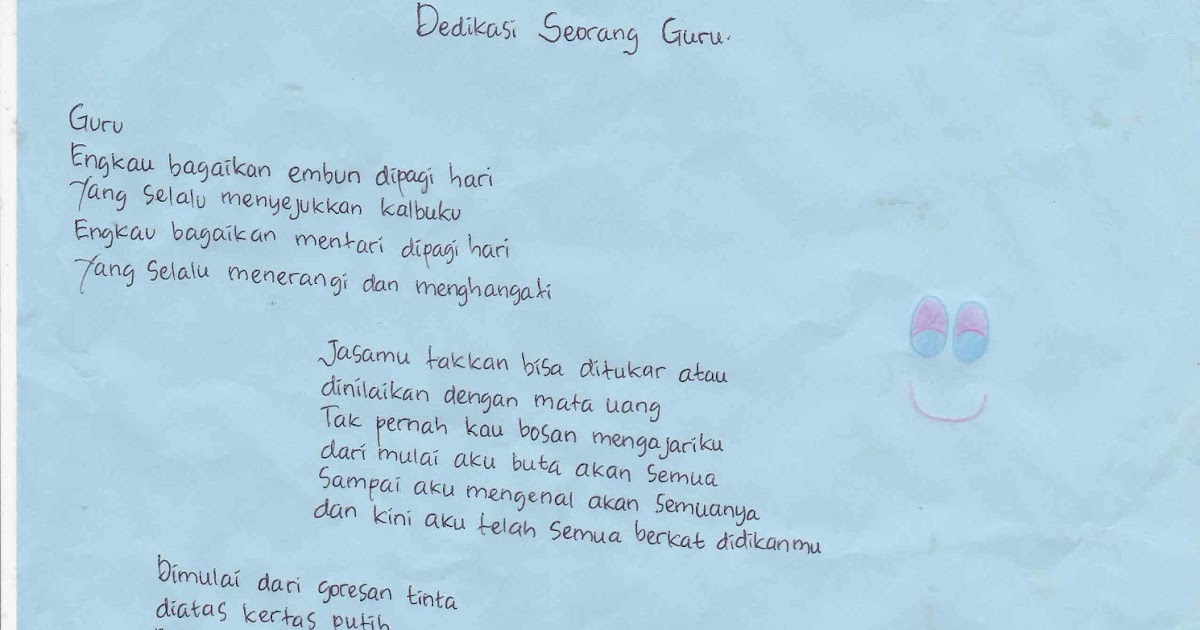 Dedikasi Seorang Guru.
Guru
Engkau bagaikan embun dipagi hari
Yang selalu menyejukkan kalbuku
Engkau bagaikan mentari dipagi hari
Yang selalu menerangi dan menghangati
Jasamu takkan bisa ditukar atau
dinilaikan dengan mata uang
Tak pernah kau bosan mengajariku
dari mulai aku buta akan semua
Sampai aku mengenal akan semuanya
dan kini aku telah semua berkat didikanmu
Dimulai dari goresan tinta
diatas kertas putih